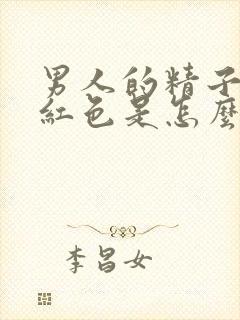 男人的精子
紅色是怎麼
李昌女